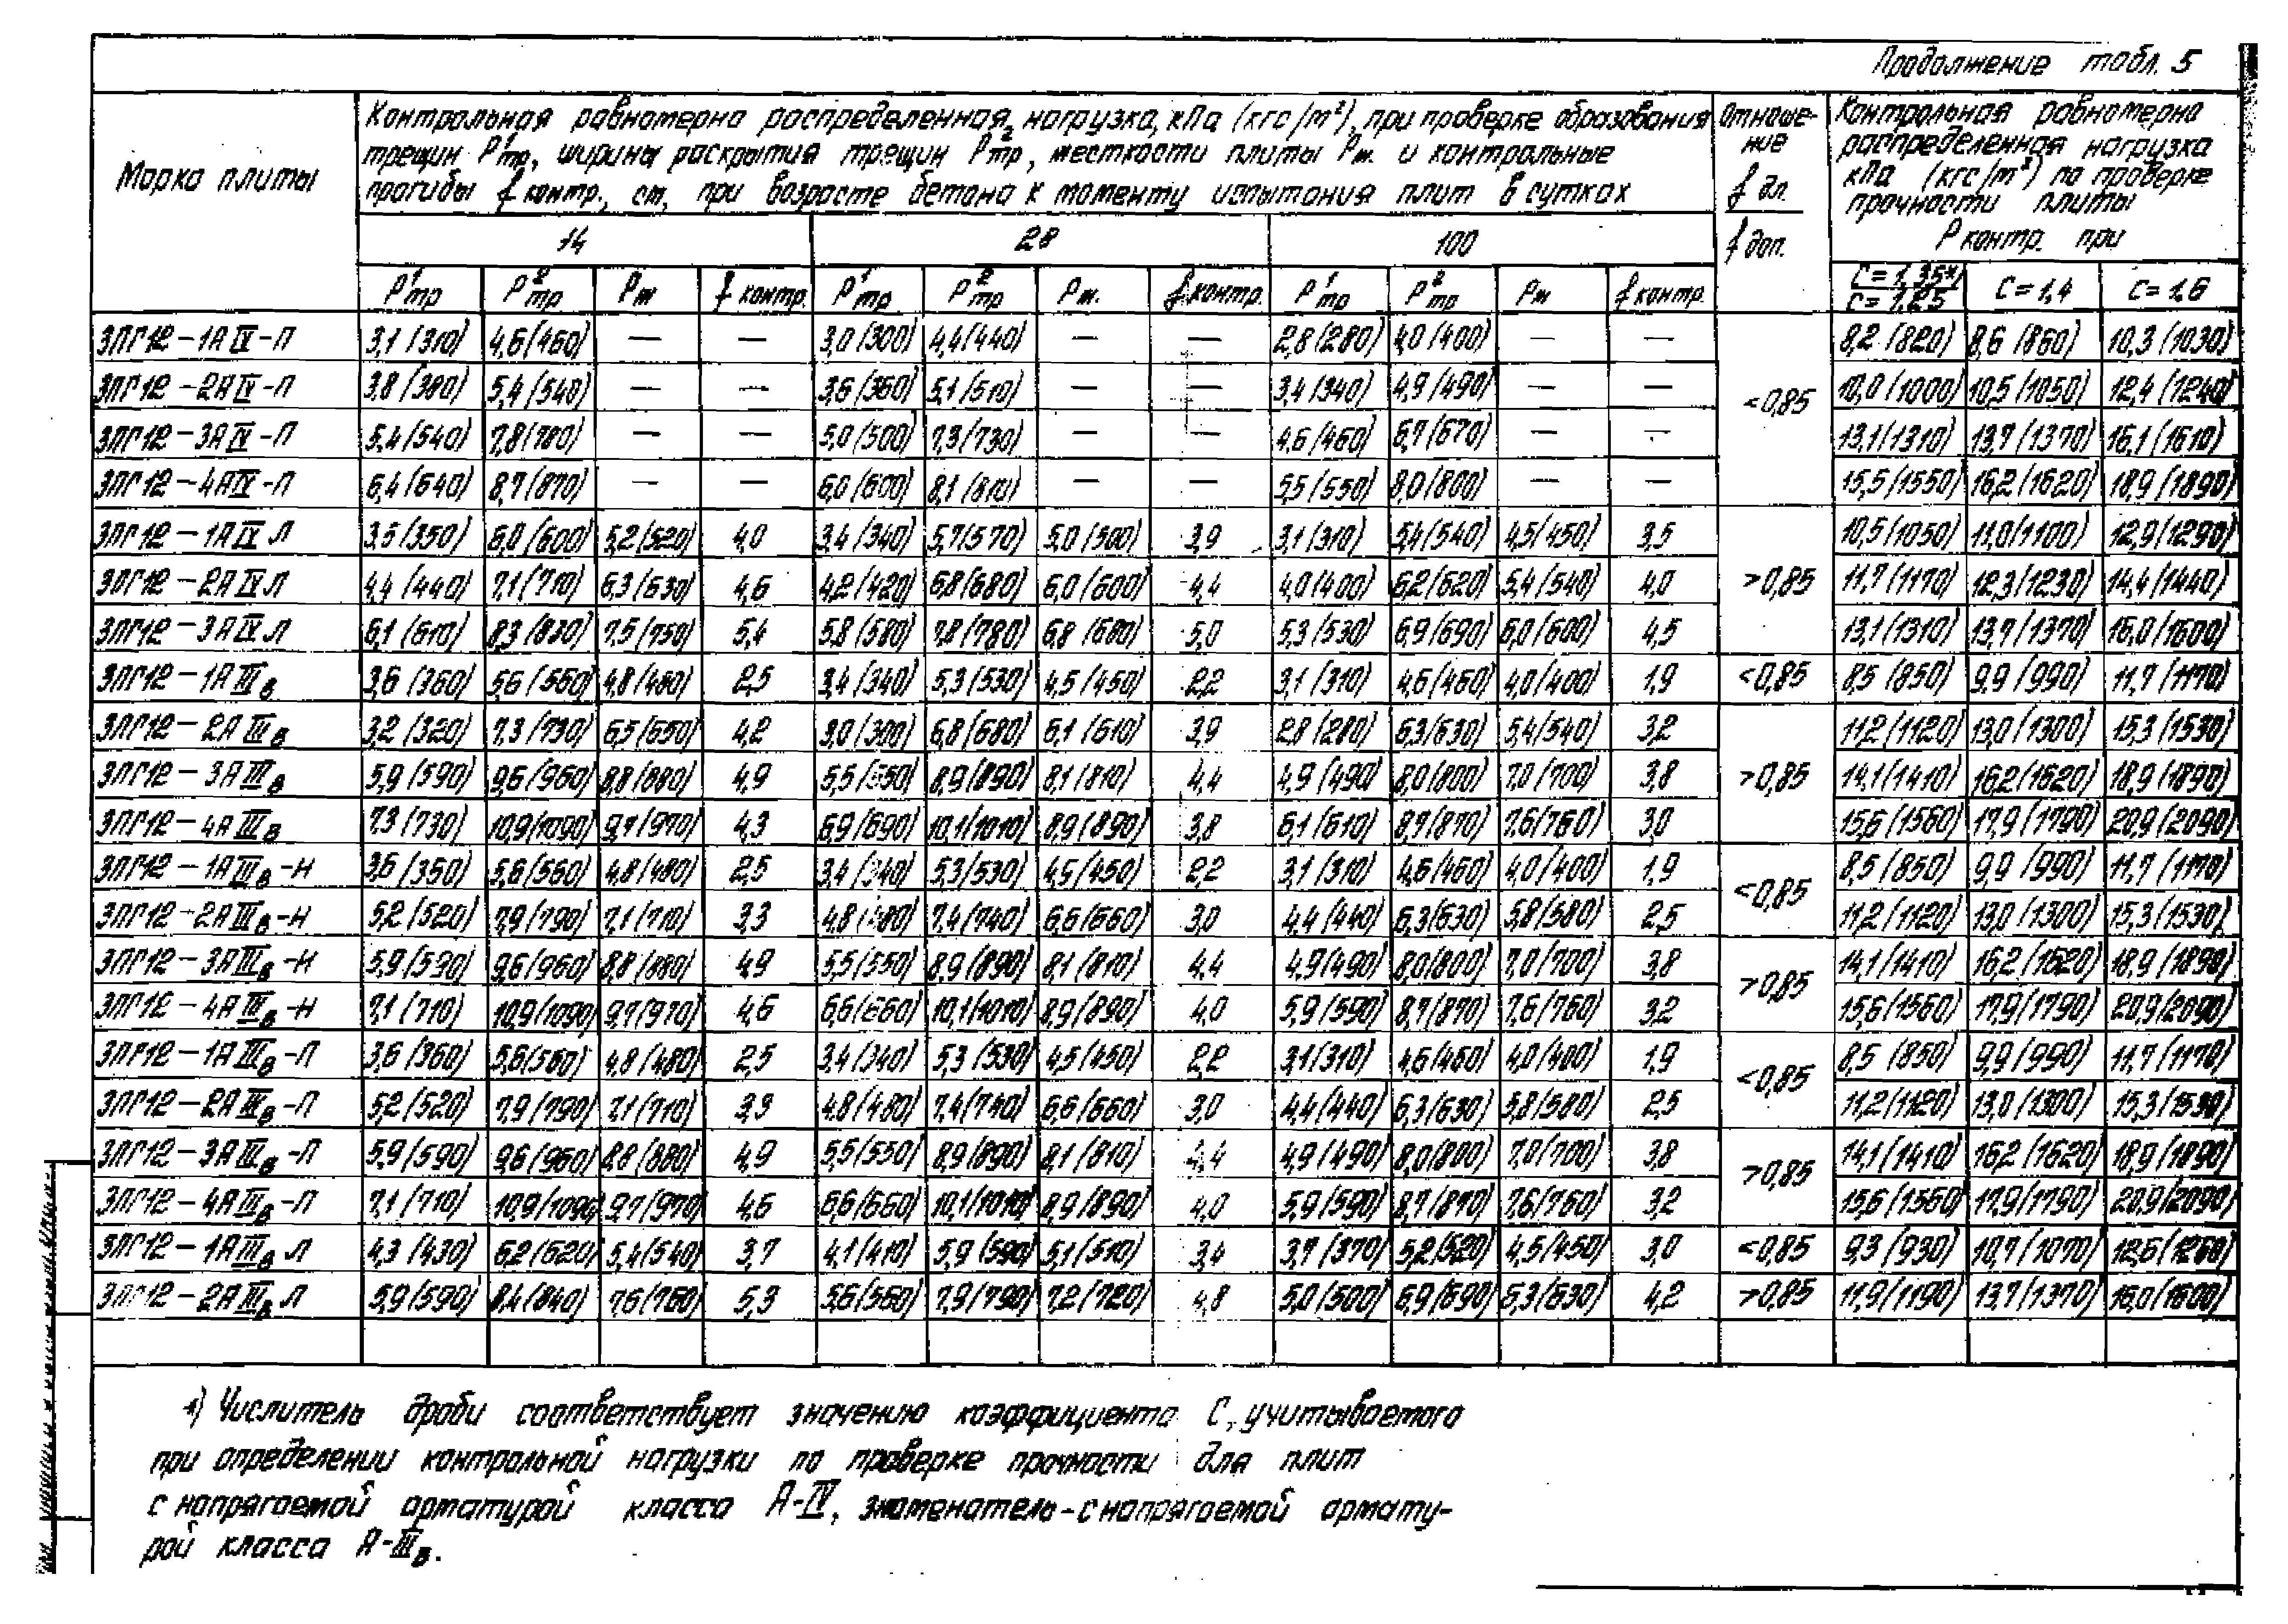 Продолжение табл. 5
Марка плиты
Контрольная равномерно распределенная нагрузка, кПа (кгс/м²), при проверке образования
трещин P¹тр, ширины раскрытия трещин P²тр, жесткости плиты Pж. и контрольные
прогибы f контр., см, при возрасте бетона к моменту испытания плит в сутках
Отноше-
ние
f дл.
f доп.
Контрольная равномерно
распределенная нагрузка
кПа (кгс/м²) по проверке
прочности плиты
P контр. при
14 28 100
P¹тр P²тр Pж f контр. P¹тр P²тр Pж. f контр. P¹тр P²тр Pж f контр. C=1,35*)/C=1,25 C=1,4 C=1,6
3ПГ12-1АIV-П 3,1 (310) 4,6 (460) — — 3,0 (300) 4,4 (440) — — 2,8 (280) 4,0 (400) — — 8,2 (820) 8,6 (860) 10,3 (1030)
3ПГ12-2АIV-П 3,8 (380) 5,4 (540) — — 3,6 (360) 5,1 (510) — — 3,4 (340) 4,9 (490) — — <0,85 10,0 (1000) 10,5 (1050) 12,4 (1240)
3ПГ12-3АIV-П 5,4 (540) 7,8 (780) — — 5,0 (500) 7,3 (730) — — 4,6 (460) 6,7 (670) — — 13,1 (1310) 13,7 (1370) 16,1 (1610)
3ПГ12-4АIV-П 6,4 (640) 8,7 (870) — — 6,0 (600) 8,1 (810) — — 5,5 (550) 8,0 (800) — — 15,5 (1550) 16,2 (1620) 18,9 (1890)
3ПГ12-1АIVЛ 3,5 (350) 6,0 (600) 5,2 (520) 4,0 3,4 (340) 5,7 (570) 5,0 (500) 3,9 3,1 (310) 5,4 (540) 4,5 (450) 3,5 10,5 (1050) 11,0 (1100) 12,9 (1290)
3ПГ12-2АIVЛ 4,4 (440) 7,1 (710) 6,3 (630) 4,6 4,2 (420) 6,8 (680) 6,0 (600) 4,4 4,0 (400) 6,2 (620) 5,4 (540) 4,0 >0,85 11,7 (1170) 12,3 (1230) 14,4 (1440)
3ПГ12-3АIVЛ 6,1 (610) 8,3 (830) 7,5 (750) 5,4 5,8 (580) 7,8 (780) 6,8 (680) 5,0 5,3 (530) 6,9 (690) 6,0 (600) 4,5 13,1 (1310) 13,7 (1370) 16,0 (1600)
3ПГ12-1АIIIв 3,6 (360) 5,6 (560) 4,8 (480) 2,5 3,4 (340) 5,3 (530) 4,5 (450) 2,2 3,1 (310) 4,6 (460) 4,0 (400) 1,9 <0,85 8,5 (850) 9,9 (990) 11,7 (1170)
3ПГ12-2АIIIв 3,2 (320) 7,3 (730) 6,5 (650) 4,2 3,0 (300) 6,8 (680) 6,1 (610) 3,9 2,8 (280) 6,3 (630) 5,4 (540) 3,2 11,2 (1120) 13,0 (1300) 15,3 (1530)
3ПГ12-3АIIIв 5,9 (590) 9,6 (960) 8,8 (880) 4,9 5,5 (550) 8,9 (890) 8,1 (810) 4,4 4,9 (490) 8,0 (800) 7,0 (700) 3,8 >0,85 14,1 (1410) 16,2 (1620) 18,9 (1890)
3ПГ12-4АIIIв 7,3 (730) 10,9 (1090) 9,7 (970) 4,3 6,9 (690) 10,1 (1010) 8,9 (890) 3,8 6,1 (610) 8,7 (870) 7,6 (760) 3,0 15,6 (1560) 17,9 (1790) 20,9 (2090)
3ПГ12-1АIIIв-Н 3,6 (350) 5,6 (560) 4,8 (480) 2,5 3,4 (340) 5,3 (530) 4,5 (450) 2,2 3,1 (310) 4,6 (460) 4,0 (400) 1,9 <0,85 8,5 (850) 9,9 (990) 11,7 (1170)
3ПГ12-2АIIIв-Н 5,2 (520) 7,9 (790) 7,1 (710) 3,3 4,8 (480) 7,4 (740) 6,6 (660) 3,0 4,4 (440) 6,3 (630) 5,8 (580) 2,5 11,2 (1120) 13,0 (1300) 15,3 (1530)
3ПГ12-3АIIIв-Н 5,9 (590) 9,6 (960) 8,8 (880) 4,9 5,5 (550) 8,9 (890) 8,1 (810) 4,4 4,9 (490) 8,0 (800) 7,0 (700) 3,8 >0,85 14,1 (1410) 16,2 (1620) 18,9 (1890)
3ПГ12-4АIIIв-Н 7,1 (710) 10,9 (1090) 9,7 (970) 4,6 6,6 (660) 10,1 (1010) 8,9 (890) 4,0 5,9 (590) 8,7 (870) 7,6 (760) 3,2 15,6 (1560) 17,9 (1790) 20,9 (2090)
3ПГ12-1АIIIв-П 3,6 (360) 5,6 (560) 4,8 (480) 2,5 3,4 (340) 5,3 (530) 4,5 (450) 2,2 3,1 (310) 4,6 (460) 4,0 (400) 1,9 <0,85 8,5 (850) 9,9 (990) 11,7 (1170)
3ПГ12-2АIIIв-П 5,2 (520) 7,9 (790) 7,1 (710) 3,3 4,8 (480) 7,4 (740) 6,6 (660) 3,0 4,4 (440) 6,3 (630) 5,8 (580) 2,5 11,2 (1120) 13,0 (1300) 15,3 (1530)
3ПГ12-3АIIIв-П 5,9 (590) 9,6 (960) 8,8 (880) 4,9 5,5 (550) 8,9 (890) 8,1 (810) 4,4 4,9 (490) 8,0 (800) 7,0 (700) 3,8 >0,85 14,1 (1410) 16,2 (1620) 18,9 (1890)
3ПГ12-4АIIIв-П 7,1 (710) 10,9 (1090) 9,7 (970) 4,6 6,6 (660) 10,1 (1010) 8,9 (890) 4,0 5,9 (590) 8,7 (870) 7,6 (760) 3,2 15,6 (1560) 17,9 (1790) 20,9 (2090)
3ПГ12-1АIIIвЛ 4,3 (430) 6,2 (620) 5,4 (540) 3,7 4,1 (410) 5,9 (590) 5,1 (510) 3,4 3,7 (370) 5,2 (520) 4,5 (450) 3,0 <0,85 9,3 (930) 10,7 (1070) 12,6 (1260)
3ПГ12-2АIIIвЛ 5,9 (590) 8,4 (840) 7,6 (760) 5,3 5,6 (560) 7,9 (790) 7,2 (720) 4,8 5,0 (500) 6,9 (690) 6,3 (630) 4,2 >0,85 11,9 (1190) 13,7 (1370) 16,0 (1600)
*) Числитель дроби соответствует значению коэффициента С, учитываемого
при определении контрольной нагрузки по проверке прочности для плит
с напрягаемой арматурой класса А-IV, знаменатель - с напрягаемой армату-
рой класса А-IIIв.